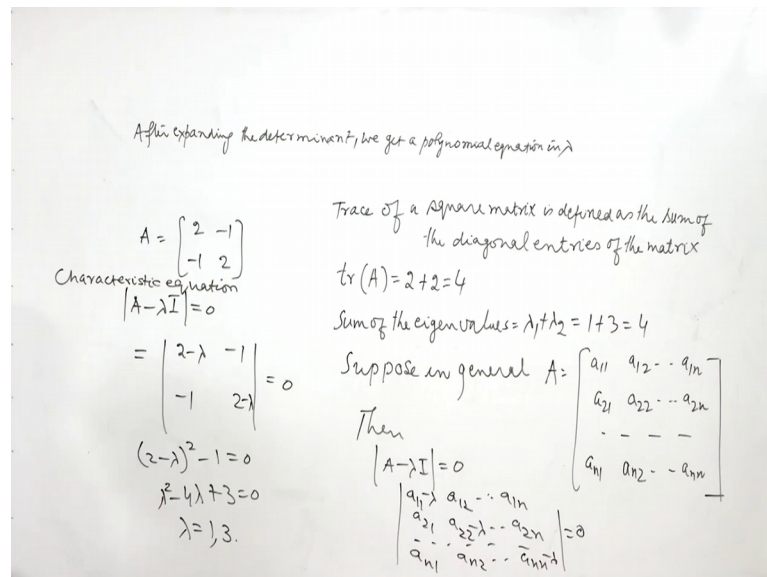 After expanding the determinant, we get a polynomial equation in λ
A = [2 -1
-1 2]
Characteristic equation
|A-λI|=0
= |2-λ -1
-1 2-λ| = 0
(2-λ)²-1=0
λ²-4λ+3=0
λ=1,3.
Trace of a square matrix is defined as the sum of
the diagonal entries of the matrix
tr(A)=2+2=4
Sum of the eigenvalues=λ₁+λ₂=1+3=4
Suppose in general A= [a₁₁ a₁₂-- a₁n
a₂₁ a₂₂--- a₂n
- - - -
an₁ an₂-- ann]
Then
|A-λI|=0
|a₁₁-λ a₁₂--- a₁n
a₂₁ a₂₂-λ--- a₂n
- - - - - -
an₁ an₂-- ann-λ|=0